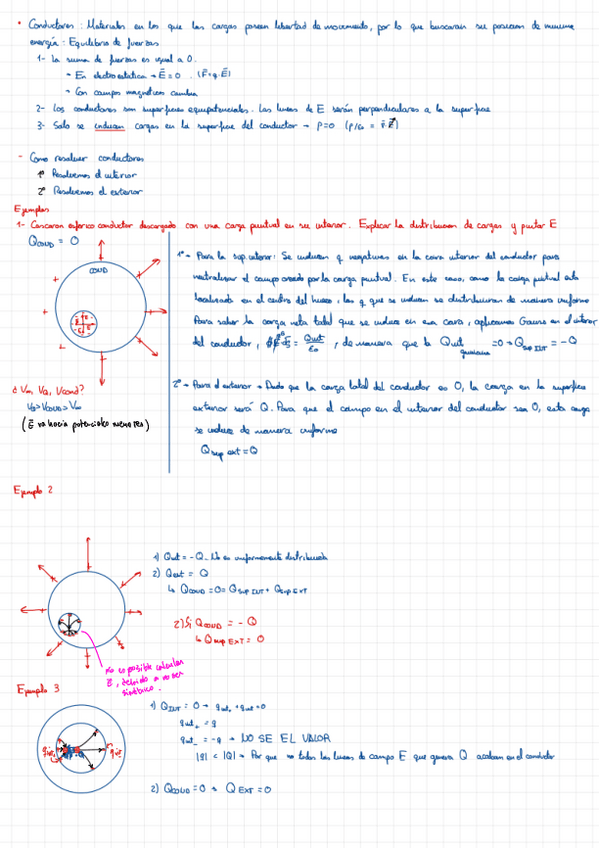 • Conductores : Materiales en los que las cargas poseen libertad de movimiento, por lo que buscaran su posicion de minima
energía : Equilibrio de fuerzas
1- La suma de fuerzas es igual a 0.
- En electroestática → E = 0 . (F=q·E)
- Con campos magneticos cambia
2- Los conductores son superficies equipotenciales. Las lineas de E serán perpendiculares a la superficie
3- Solo se inducen cargas en la superficie del conductor → ρ=0 (ρ/ε₀ = ∇·E)
- Como resolver conductores
1º Resolvemos el interior
2º Resolvemos el exterior
Ejemplos
1- Cascaron esferico conductor descargado con una carga puntual en su interior. Explicar la distribucion de cargas y pintar E
Q COND = 0
COND
¿ V∞, VQ, Vcond?
VQ>VCOND>V∞
(E va hacia potenciales menores)
1º → Para la sup interior: Se inducen q negativas en la cara interior del conductor para
neutralizar el campo creado por la carga puntual. En este caso, como la carga puntual esta
localizada en el centro del hueco, las q que se inducen se distribuiran de manera uniforme
Para saber la carga neta total que se induce en esa cara, aplicamos Gauss en el interior
del conductor, = Qint/ε₀ , de manera que la Qint =0 → Q sup INT = -Q
2º → Para el exterior → Dado que la carga total del conductor es 0, la carga en la superficie
exterior será Q. Para que el campo en el interior del conductor sea 0, esta carga
se induce de manera uniforme
Q sup ext = Q
Ejemplo 2
1) Qint = -Q → No es uniformemente distribuida
2) Qext = Q
↳ Q COND = 0 = Q sup INT + Q sup EXT
2) Si Q COND = - Q
↳ Q sup EXT = 0
no es posible calcular
E, debido a no ser
simétrico.
Ejemplo 3
1) Q INT = 0 → q int+ + q int- = 0
q int+ = q
q int- = -q → NO SE EL VALOR
|q| < |Q| → Por que no todas las lineas de campo E que genera Q acaban en el conductor
2) Q COND = 0 → Q EXT = 0